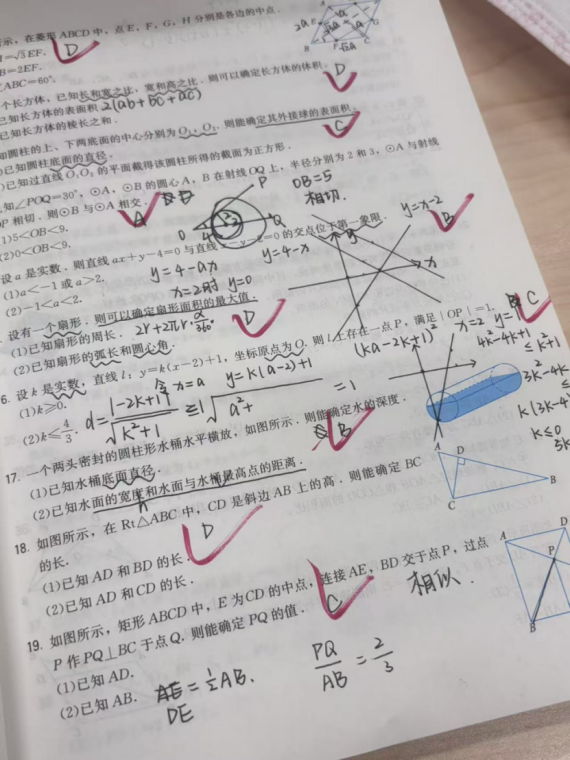 示，在菱形ABCD中，点E、F、G、H分别是各边的中点．
=√3EF．
B=2EF．
ABC=60°．
D
个长方体，已知长和宽之比、宽和高之比．则可以确定长方体的体积．
已知长方体的表面积 2(ab+bc+ac)
已知长方体的棱长之和．
D
知圆柱的上、下两底面的中心分别为O₁、O₂．则能确定其外接球的表面积．
已知圆柱底面的直径．
已知过直线O₁O₂的平面截得该圆柱所得的截面为正方形．
C
知∠POQ=30°，⊙A、⊙B的圆心A、B在射线OQ上，半径分别为2和3，⊙A与射线
OP相切．则⊙B与⊙A相交．
(1)5<OB<9．
(2)0<OB<9．
A
P
Q
O
OB=5
相切．
设a是实数．则直线ax+y-4=0与直线x-y-2=0的交点位于第一象限．
(1)a<-1或a>2．
(2)-1<a<2．
y=4-ax
x=2时 y=0
y=4-x
y=x-2
y
x
B
设有一个扇形．则可以确定扇形面积的最大值．
(1)已知扇形的周长．2r+2πr·α/360°
(2)已知扇形的弧长和圆心角．
D
6. 设k是实数，直线l：y=k(x-2)+1，坐标原点为O．则l上存在一点P，满足|OP|=1．
(1)k≥0．
(2)k≤4/3．
C
令x=a y=k(a-2)+1
d=|1-2k+1|/√k²+1 ≤1
√a²+(ka-2k+1)² =1
x=2
k≤0
17. 一个两头密封的圆柱形水桶水平横放，如图所示．则能确定水的深度．
(1)已知水桶底面直径．
(2)已知水面的宽度和水面与水桶最高点的距离．
B
18. 如图所示，在Rt△ABC中，CD是斜边AB上的高．则能确定BC
的长．
(1)已知AD和BD的长．
(2)已知AD和CD的长．
D
A
D
B
C
相似．
19. 如图所示，矩形ABCD中，E为CD的中点，连接AE，BD交于点P，过点
P作PQ⊥BC于点Q．则能确定PQ的值．
(1)已知AD．
(2)已知AB．
C
DE=½AB．
PQ/AB=2/3
A
D
P
B